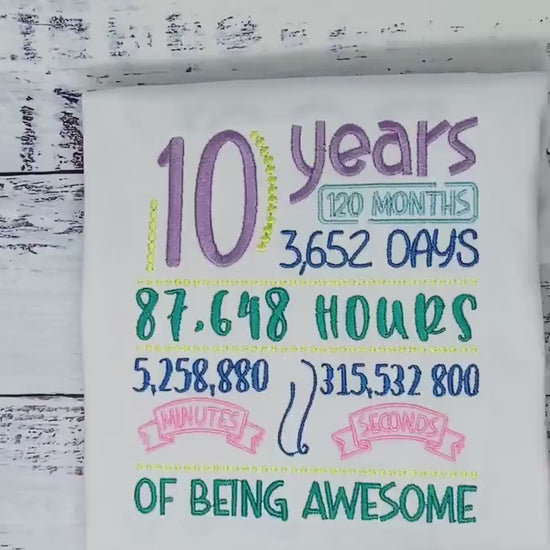 10 years
120 MONTHS
3,652 DAYS
87,648 HOURS
5,258,880 315,532 800
MINUTES SECONDS
OF BEING AWESOME